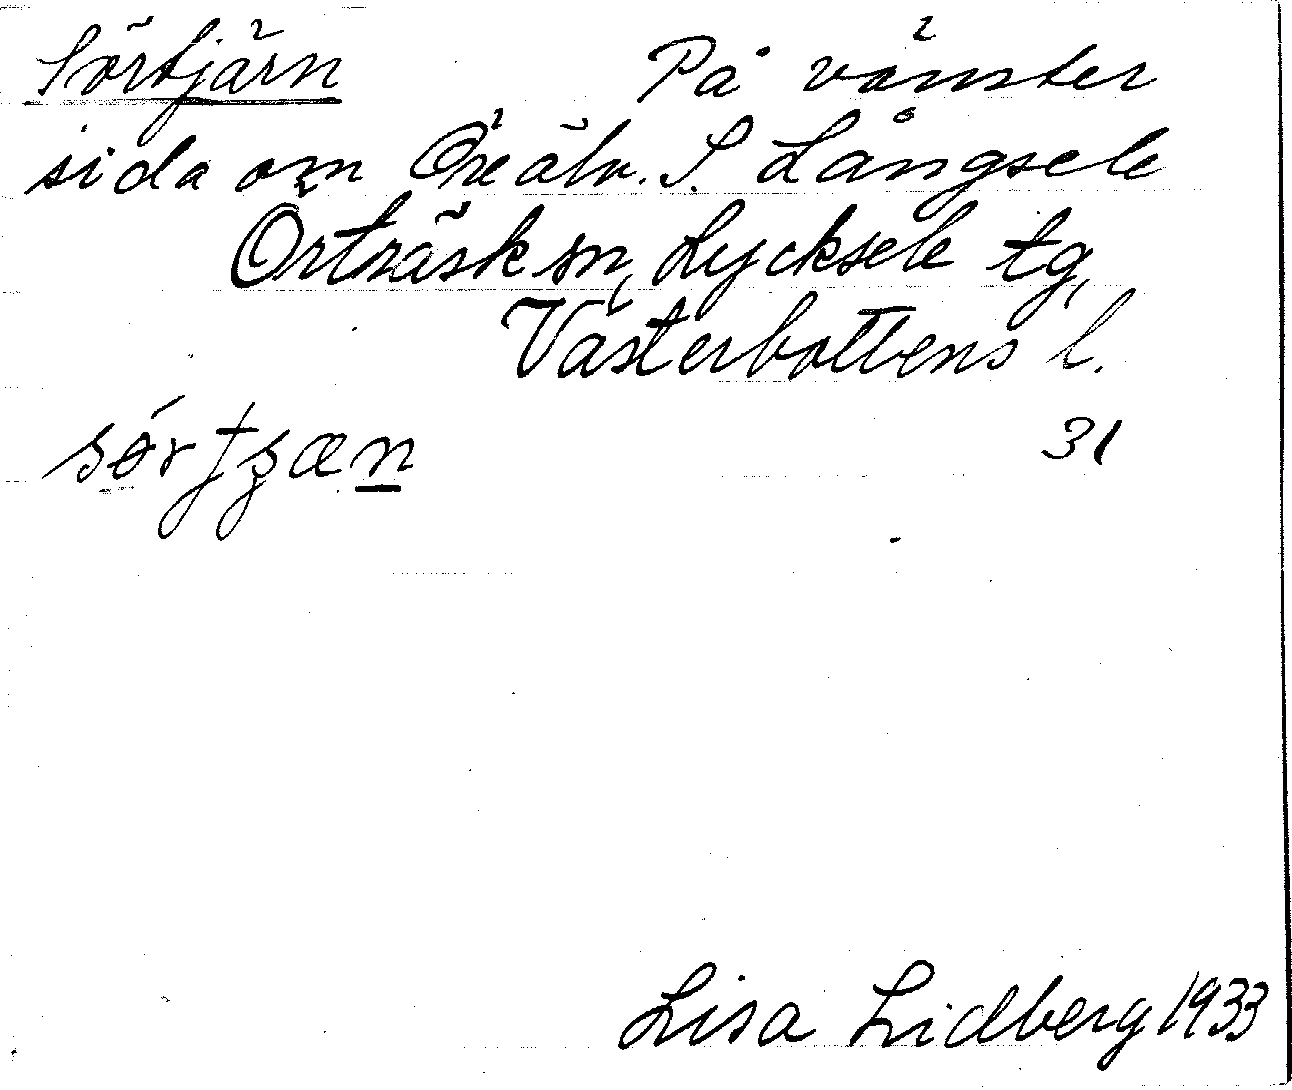 Sörtjärn På vänster
sida om Öreälv. S. Långsele
Örträsk sn, Lycksele tg,
Västerbottens l.
31
Lisa Lidberg 1933